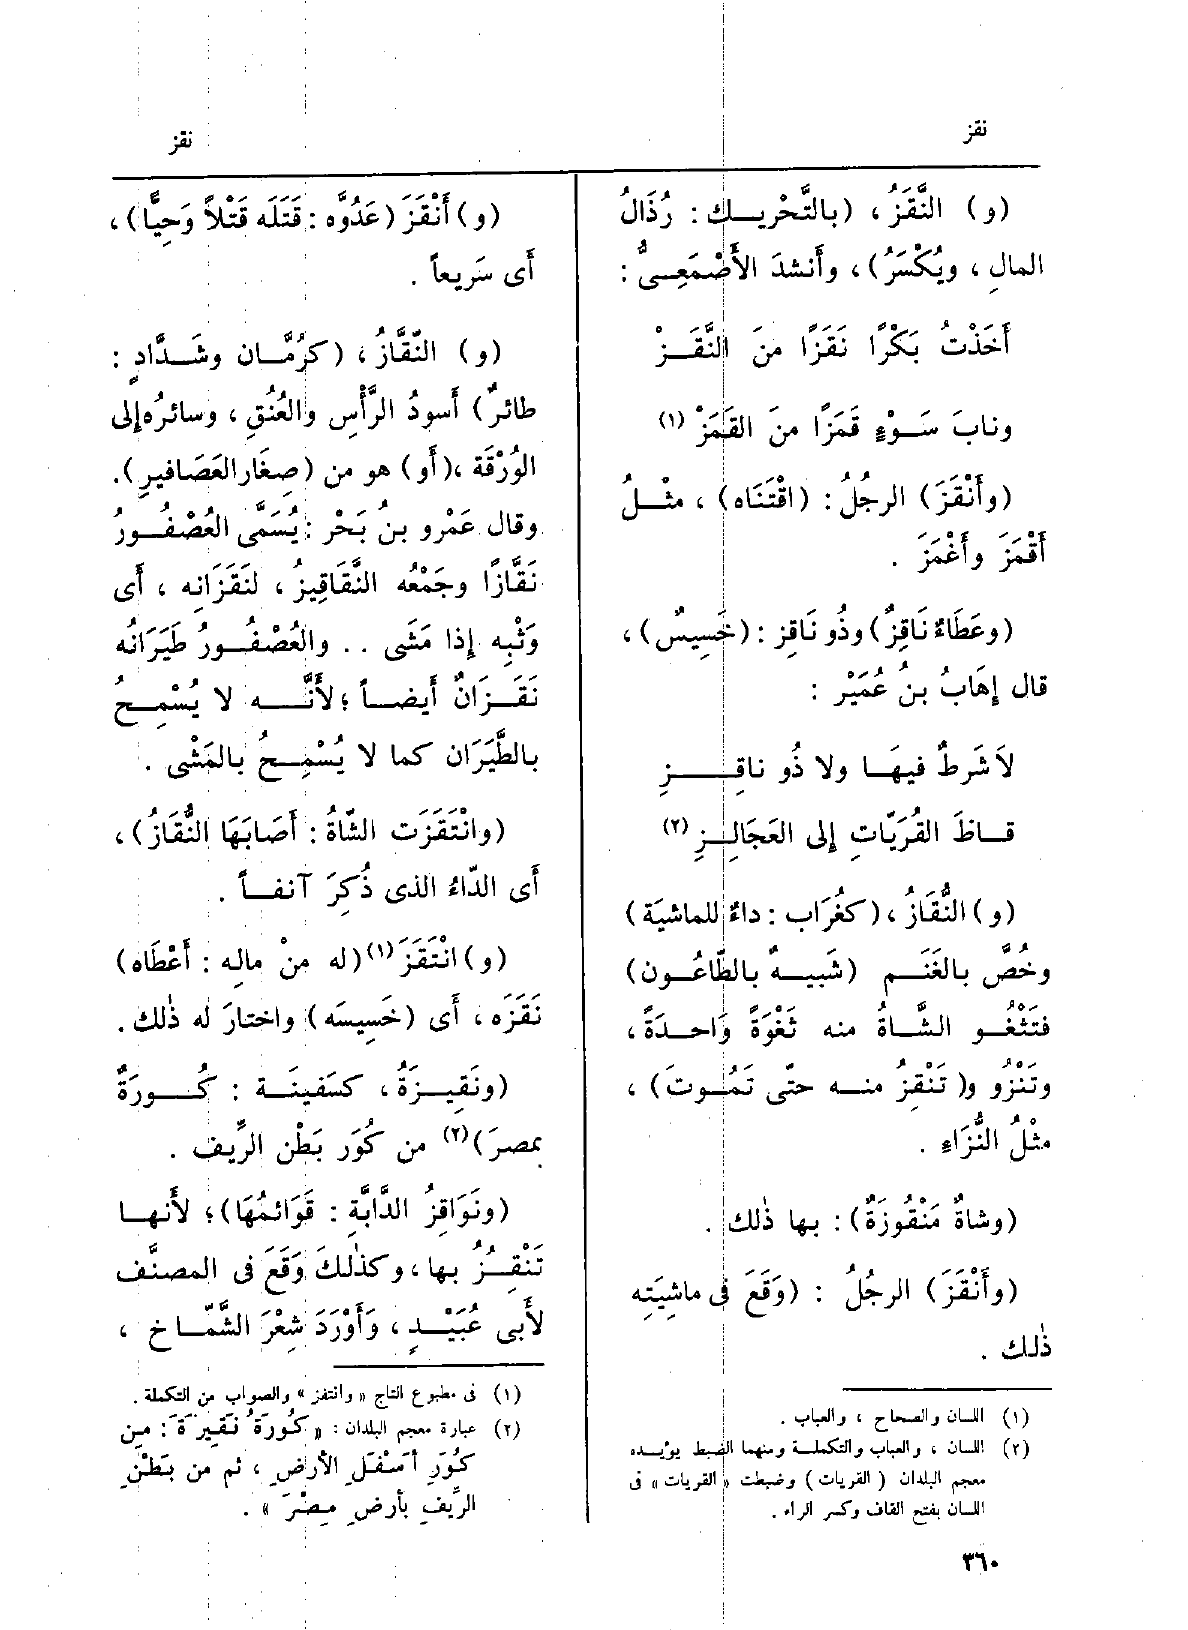 نقز
نقز
(و) النَّقَزُ ، (بالتَّحْرِيـك : رُذَالُ
المالِ ، ويُكْسَرُ) ، وأَنشدَ الأَصْمَعِىُّ :
أَخَذْتُ بَكْرًا نَقَزًا منَ النَّقَـزْ
ونابَ سَـوْءٍ قَمَزًا منَ القَمَزْ (١)
(وأَنْقَزَ) الرجُلُ : (اقْتَنَاه) ، مثْـلُ
أَقْمَزَ وأَغْمَزَ .
(وعَطَاءٌ نَاقِزٌ) وذُو نَاقِز : (خَسِيسٌ) ،
قال إِهَابُ بنُ عُمَيْر :
لاَ شَرطٌ فيهَـا ولا ذُو ناقِـزِ
قـاظَ القُرَيّاتِ إلى العَجَالِـزِ (٢)
(و) النُّقَازُ ، (كغُرَاب : داءٌ للماشيَة)
وخُصَّ بالغَنَـم (شَبِيـهٌ بالطّاعُـون)
فتَثْغُـو الشَّـاةُ منه ثَغْوَةً وَاحـدَةً ،
وتَنْزُو و( تَنْقُزُ منـه حتّى تَمُـوتَ) ،
مثْلُ النُّزَاءِ .
(وشاةٌ مَنْقُوزَةٌ) : بها ذٰلك .
(وأَنْقَزَ) الرجُلُ : (وَقَعَ فى ماشِيَتِه
ذٰلك .
(١) اللسان والصحاح ، والعباب .
(٢) اللسان ، والعباب والتكملـة ومنهما الضبط يؤيـده
معجم البلدان ( القريات ) وضبطت « القريات » فى
اللسان بفتح القاف وكسر الراء .
(و) أَنْقَزَ (عَدُوَّه : قَتَلَه قَتْلاً وَحِيًّا) ،
أَى سَرِيعاً .
(و) النّقَّازُ ، (كرُمَّـان وشَـدَّادٍ :
طائرٌ) أَسودُ الرَّأْسِ والعُنُقِ ، وسائرُه إلى
الوُرْقَة ، (أَو) هو من (صِغَار العَصَافيرِ).
وقال عَمْرو بنُ بَحْر : يُسَمَّى العُصْفُـورُ
نَقَّازًا وجَمْعُه النَّقَاقِيزُ ، لنَقَزَانِه ، أَى
وَثْبِه إذا مَشَى . . والعُصْفُـورُ طَيَرَانُه
نَقَـزَانٌ أَيضـاً ؛ لأَنَّـه لا يُسْمِـحُ
بالطَّيَرَان كما لا يُسْمِـحُ بالمَشْى .
(وانْتَقَزَت الشّاةُ : أَصَابَهَا النُّقَازُ) ،
أَى الدَّاءُ الذى ذُكِرَ آنفـاً .
(و) انْتَقَزَ (١) (له منْ ماله : أَعْطَاه)
نَقَزَه ، أَى (خَسِيسَه) واختارَ له ذٰلك .
(ونَقِيـزَةُ ، كسَفينَـة : كُـورَةٌ
بمصرَ) (٢) من كُوَر بَطْن الرِّيف .
(ونَوَاقِزُ الدَّابَّةِ : قَوَائمُهَا) ؛ لأَنهـا
تَنْقِـزُ بها ، وكذٰلكَ وَقَعَ فى المصنَّف
لأَبى عُبَيْـدٍ ، وأَوْرَدَ شِعْرَ الشَّمّاخ ،
(١) فى مطبوع التاج « وانتفز » والصواب من التكملة .
(٢) عبارة معجم البلدان : « كُورَةُ نَقِيزَةَ : مِن
كُوَرِ أسْفَلِ الأرضِ ، ثم من بَطْنِ
الرِّيفِ بأرضِ مِصْرَ » .
٣٦٠